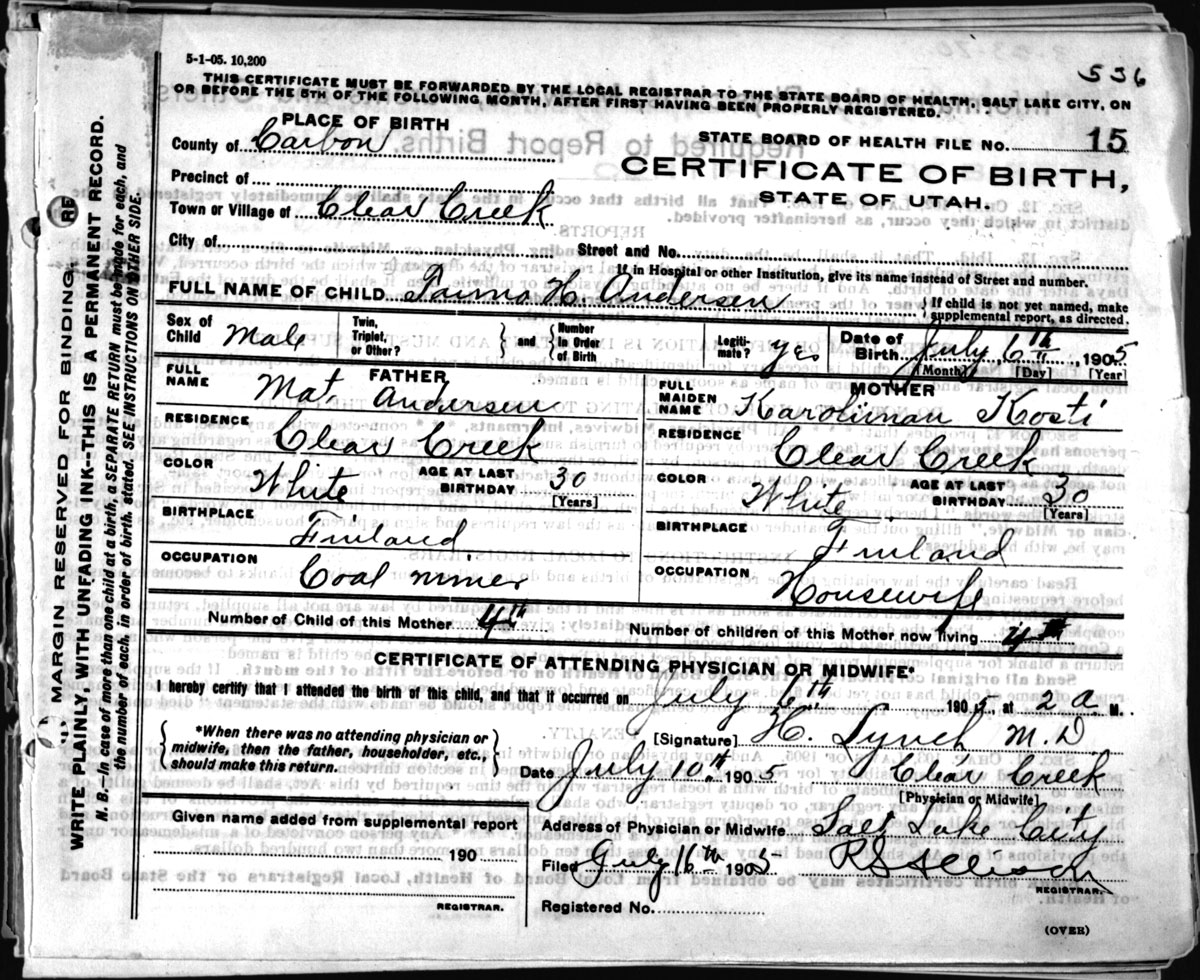 5-1-05. 10,200
536
THIS CERTIFICATE MUST BE FORWARDED BY THE LOCAL REGISTRAR TO THE STATE BOARD OF HEALTH, SALT LAKE CITY, ON
OR BEFORE THE 5TH OF THE FOLLOWING MONTH, AFTER FIRST HAVING BEEN PROPERLY REGISTERED.
PLACE OF BIRTH
County of Carbon
STATE BOARD OF HEALTH FILE No. 15
CERTIFICATE OF BIRTH,
STATE OF UTAH.
Precinct of
Town or Village of Clear Creek
City of Street and No.
If in Hospital or other Institution, give its name instead of Street and number.
FULL NAME OF CHILD H. Andersen
{If child is not yet named, make
supplemental report, as directed.
Sex of Child Male
Twin, Triplet, or Other?
{and}
Number in Order of Birth
Legitimate? yes
Date of Birth July 6th 1905
[Month] [Day] [Year]
FATHER
FULL NAME Mat. Andersen
RESIDENCE Clear Creek
COLOR White
AGE AT LAST BIRTHDAY 30
[Years]
BIRTHPLACE Finland
OCCUPATION Coal miner
MOTHER
FULL MAIDEN NAME Kosti
RESIDENCE Clear Creek
COLOR White
AGE AT LAST BIRTHDAY 30
[Years]
BIRTHPLACE Finland
OCCUPATION Housewife
Number of Child of this Mother 4th
Number of children of this Mother now living 4
CERTIFICATE OF ATTENDING PHYSICIAN OR MIDWIFE*
I hereby certify that I attended the birth of this child, and that it occurred on July 6th 1905 at 2 a M.
{*When there was no attending physician or
midwife, then the father, householder, etc.,
should make this return.}
[Signature] H. Lynch M.D
Date July 10th 1905 Clear Creek
[Physician or Midwife]
Given name added from supplemental report
190
REGISTRAR.
Address of Physician or Midwife Salt Lake City
Filed July 16th 1905
REGISTRAR.
Registered No.
(OVER)
MARGIN RESERVED FOR BINDING
WRITE PLAINLY, WITH UNFADING INK--THIS IS A PERMANENT RECORD.
N. B.--In case of more than one child at a birth, a SEPARATE RETURN must be made for each, and
the number of each, in order of birth, stated. (SEE INSTRUCTIONS ON OTHER SIDE.